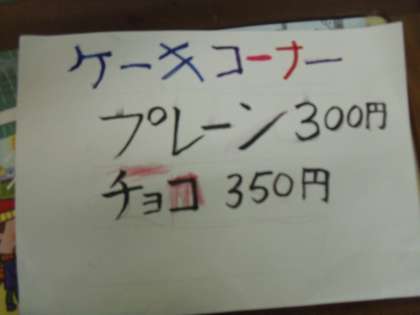 ケーキコーナー
プレーン 300円
チョコ 350円